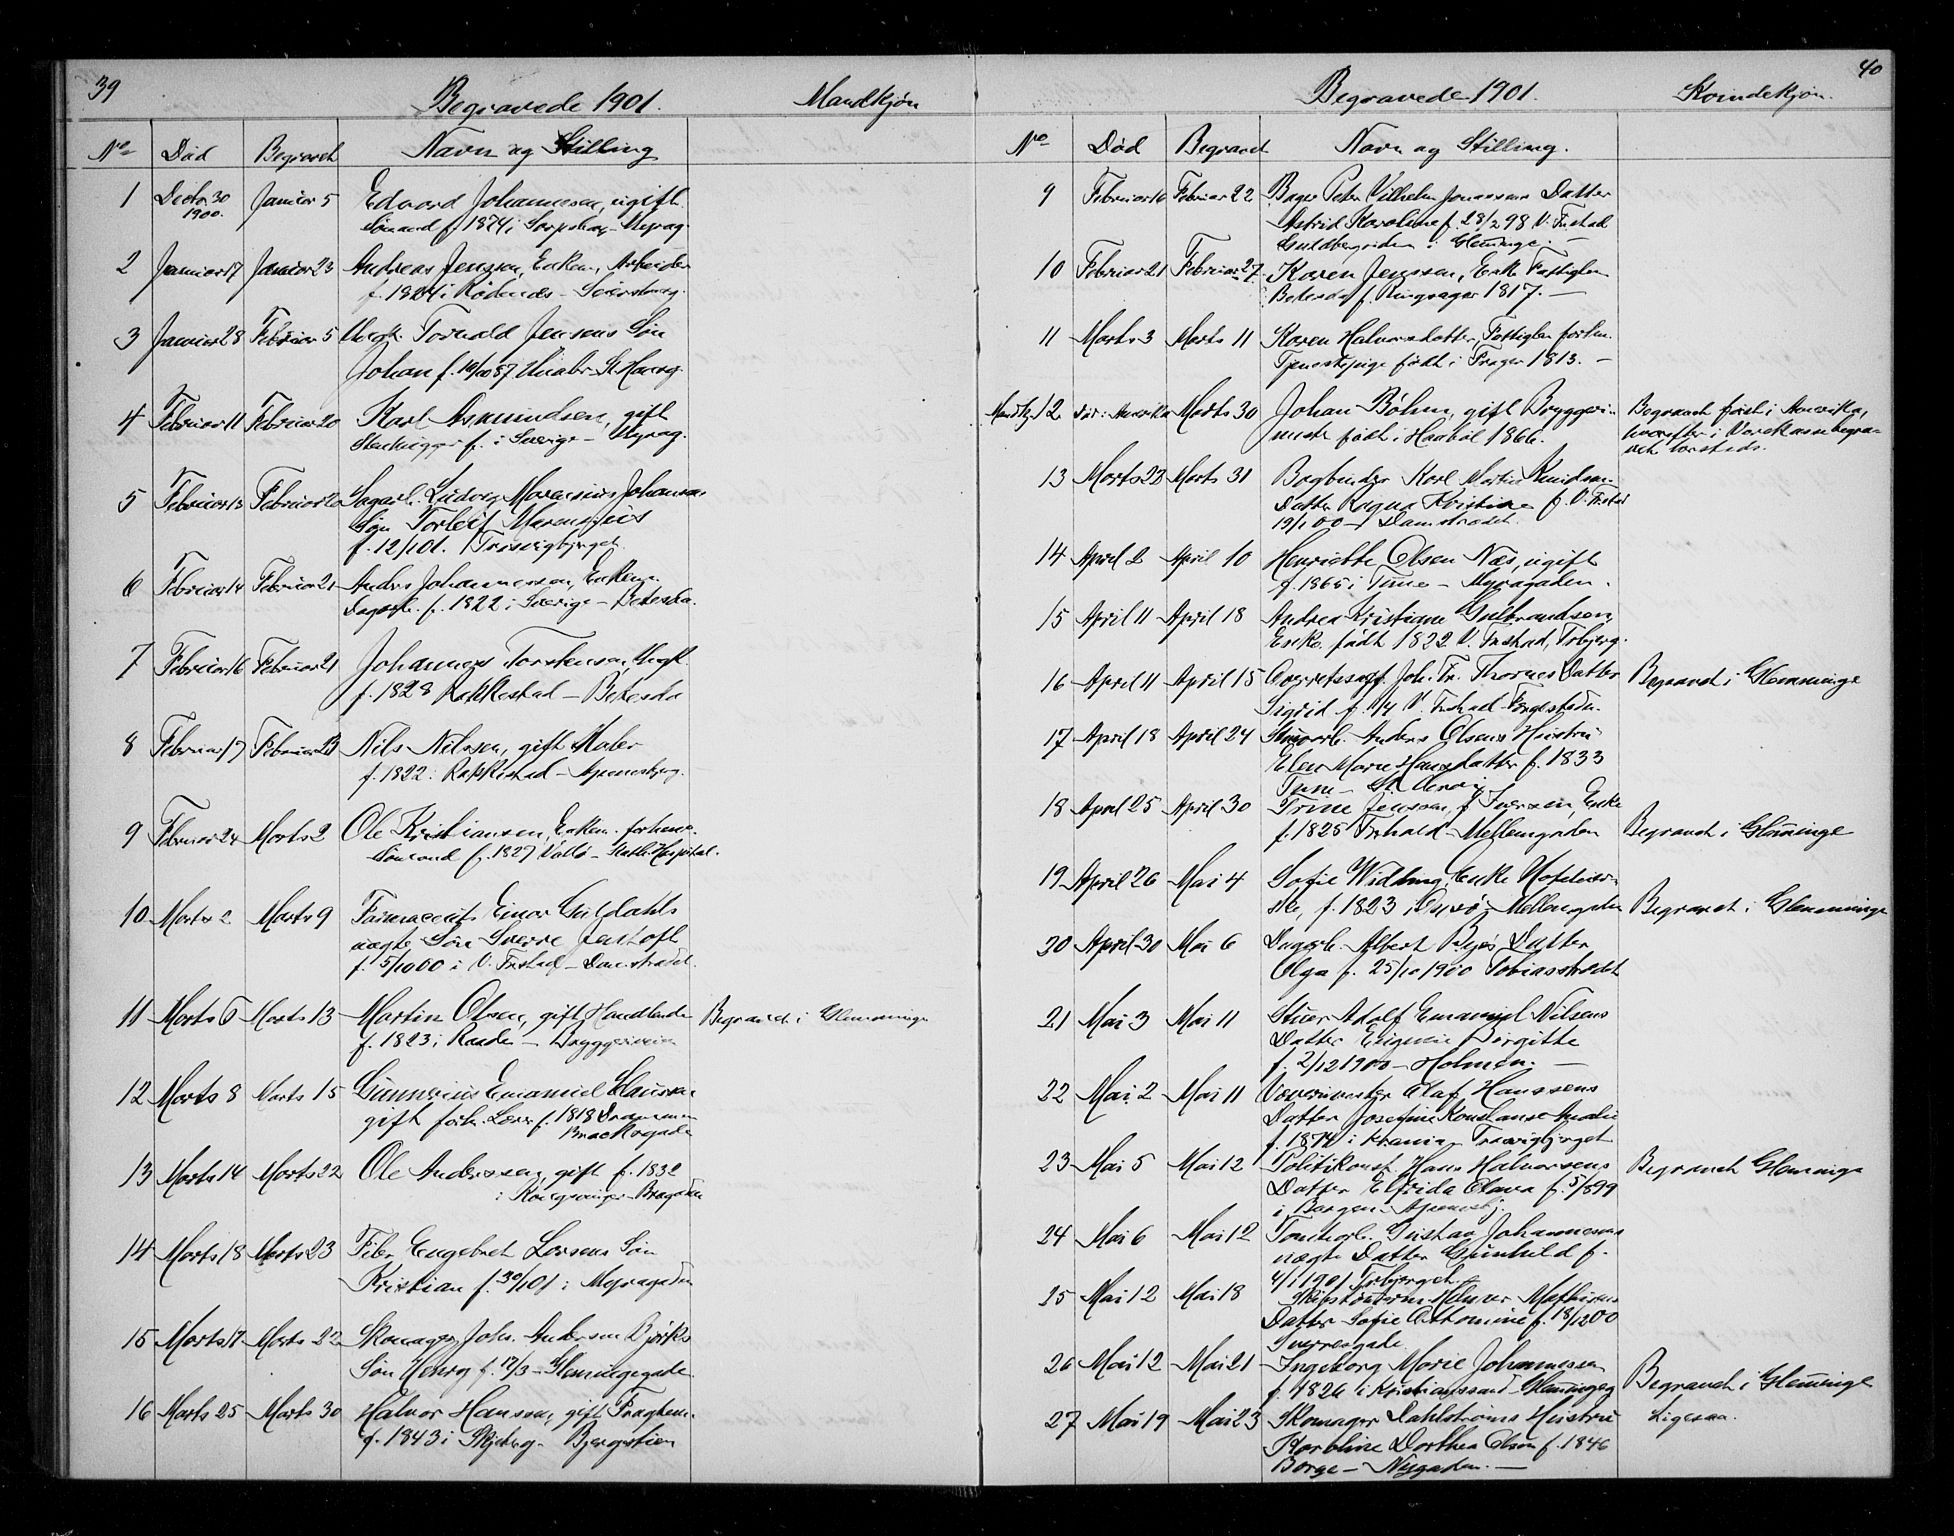 39
Begravede 1901. Mandkjøn
No Død Begravet Navn og Stilling
1 Decbr. 30 1900. Januar 5 Edvard Johannesen, ugift
Sömand f. 1874 i Sarpsborg - Myrag.
2 Januar 17 Januar 23 Andreas Jenssen, Enkem. Arbeider
f. 1824 i Rødenes -
3 Januar 28 Februar 5 Torvald Jensens Søn
Johan f.
4 Februar 11 Februar 20 Karl Asmundsen, gift
Stenhugger f. i Sverige - Myrag.
5 Februar 13 Februar 20 Sagarb. Ludvig Marensius Johansens
Søn Torleif Marensius
f. 12/1 01. Trosvigbjerget
6 Februar 14 Februar 21 Anders Johannessen, Enkem.
Dagarb. f. 1822 i Sverige - Betesda.
7 Februar 16 Februar 21 Johannes Torstensen, Ungk.
f. 1828 Rakkestad - Betesda
8 Februar 17 Februar 23 Nils Nilssen, gift Maler
f. 1822 i Rakkestad - Apenesbjerg.
9 Februar 24 Marts 2 Ole Kristiansen, Enkem. forhenv.
Sömand f. 1827 Vallø - Hospital.
10 Marts 2 Marts 9 Farmaceut Einar Guldahls
uægte Søn Sverre Jentoft
f. 5/10 00 i V. Frstad - Damstrædet.
11 Marts 6 Marts 13 Martin Olsen, gift Handlende Begravet i Glemminge
f. 1823 i Raade - Bryggeriveien
12 Marts 8 Marts 15 Gunnerius Emanuel Clausen
gift forh. Lærer f. 1818 Drammen
13 Marts 14 Marts 22 Ole Anderssen, gift f. 1832
i Kongsvinger -
14 Marts 18 Marts 23 Engebret Larsens Søn
Kristian f. 30/1 01 i Myragaden
15 Marts 17 Marts 22 Skomager Joh. Andersen Bjørks
Søn Henry f. 17/3 - Glemmingegade.
16 Marts 25 Marts 30 Halvor Hansen, gift
f. 1843 i Skjeberg - Bjergstien
40
Begravede 1901. Kvindekjøn.
No Død Begravet Navn og Stilling.
9 Februar 16 Februar 22 Bager Peter Vilhelm Jonassens Datter
Astrid Karoline f. 28/2 98 V. Frstad
i Glemminge. -
10 Februar 21 Februar 27 Karen Jenssen, Enke Fattiglem
Betesda f. Ringsager 1817. -
11 Marts 3 Marts 11 Karen Halvorsdatter, Fattiglem forhen.
Tjenestepige født i 1813. -
Mandkj. 12 død i Amerika Marts 30 Johan Bøhm, gift Bryggeri- Begravet først i Amerika,
mester født i Haabøl 1866. hvorefter i Varekasse begra-
vet
13 Marts 23 Marts 31 Bogbinder Karl Martin Knudsens
Datter Ragna Kristine f. V. Frstad
19/1 00 - Damstrædet.
14 April 2 April 10 Henriette Olsen Næs, ugift
f. 1865 i Tune - Myragaden.
15 April 11 April 18 Andrea Kristiane Gulbrandsen,
Enke født 1822 V. Frstad,
16 April 11 April 15 Overretssagf. Joh. Fr. Thornes Datter Begravet i Glemminge
Sigrid f. V. Frstad -
17 April 18 April 24 Anders Olsens Hustru
Elen Marie Hansdatter f. 1833
Tune -
18 April 25 April 30 Trine Jenssen f. Iversen, Enke
f. 1825 Frhald - Mellemgaden Begravet i Glemminge
19 April 26 Mai 4 Sofie Widding, Enke
f. 1823 i Onsø - Mellemgaden Begravet i Glemminge
20 April 30 Mai 6 Dagarb. Albert Datter
Olga f. 25/10 1900 Tobiasstrædet
21 Mai 3 Mai 11 Stuer Adolf Emanuel Nilsens
Datter Eugenie Birgitte
f. 2/12 1900 - Holmen. -
22 Mai 2 Mai 11 Væverimester Olaf Hanssens
Datter Josefine Konstanse Amalie
f. 1874 i Krania - Trosvigbjerget
23 Mai 5 Mai 12 Politikonst. Hans Halvorsens Begravet Glemminge
Datter Elfrida Olava f. 5/5 99
i Bergen - Apenesbj.
24 Mai 6 Mai 12 Tomtearb. Gustav Johannesens
uægte Datter Gunhild f.
4/1 1901
25 Mai 12 Mai 18 Skibstømmerm. Mathisens
Datter Sofie Othomine f. 18/12 00
Sverresgade.
26 Mai 12 Mai 21 Ingeborg Marie Johannessen
f. 1826 i Kristianssand - Glemmingeg. Begravet i Glemminge
27 Mai 19 Mai 23 Skomager Dahlstrøms Hustru Ligesaa.
Karoline Dorthea Olsen f. 1846
Borge - Nygaden. -